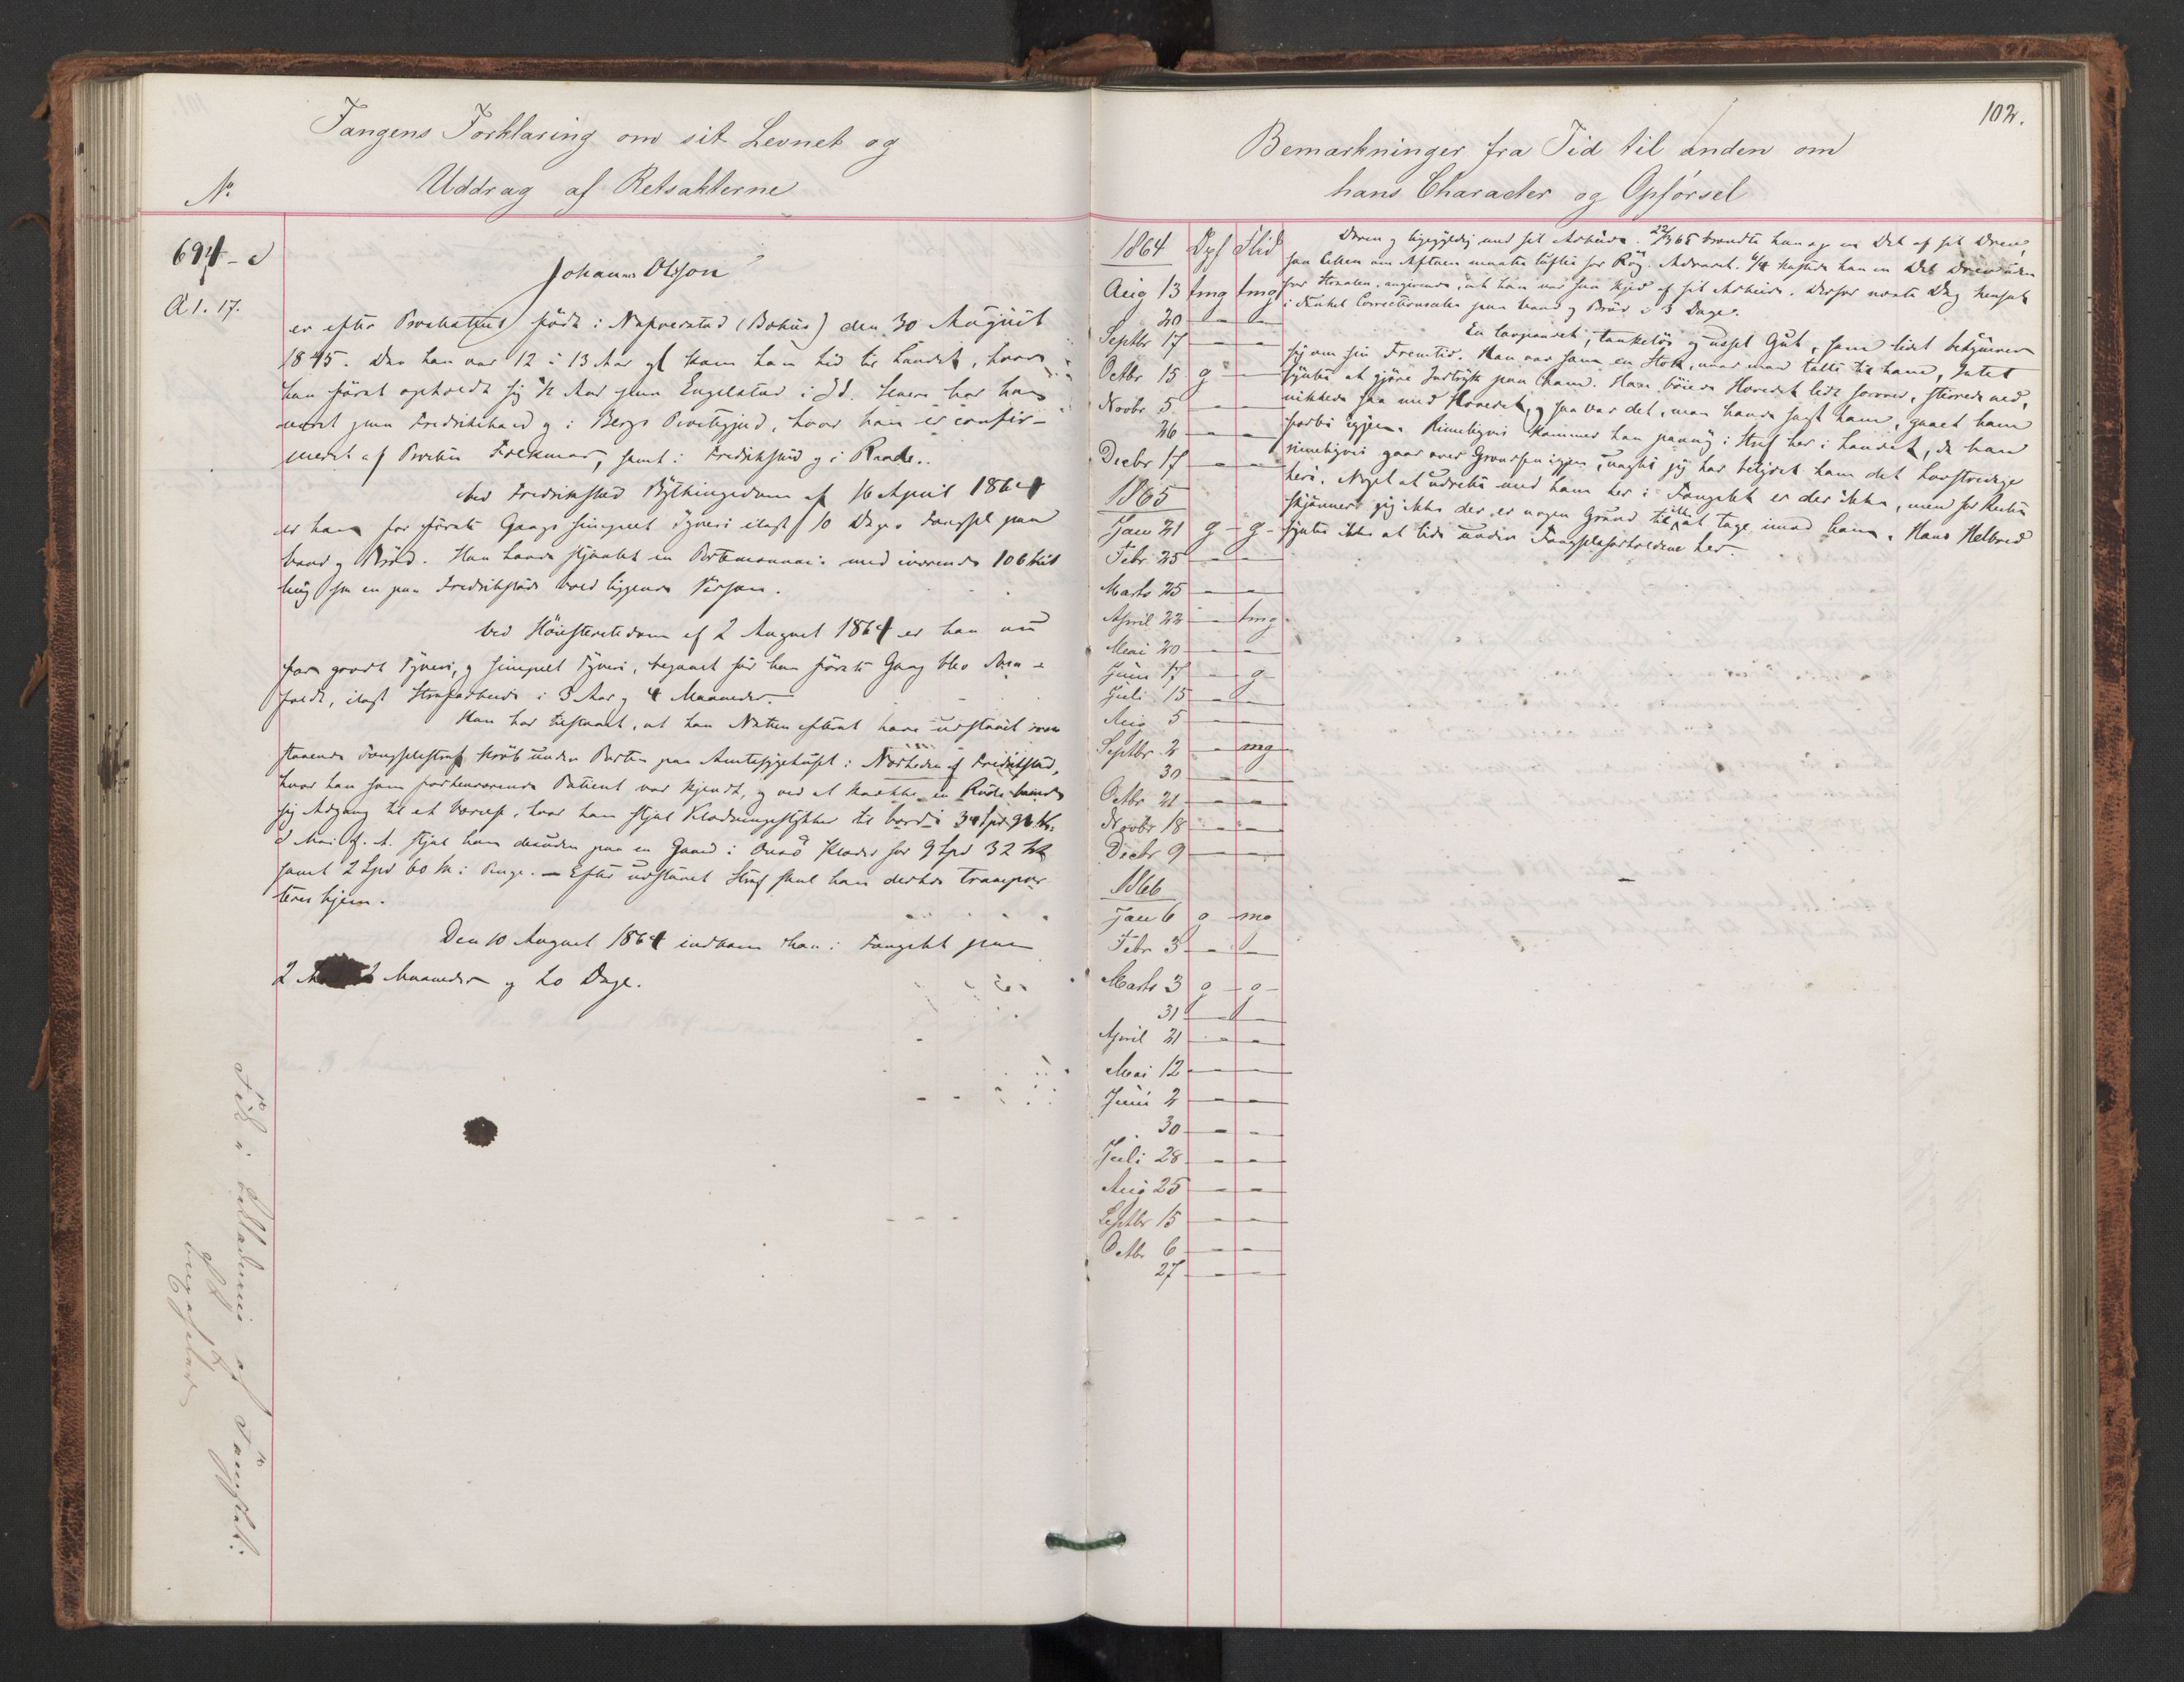 Fangens Forklaring om sit Levnet og
Uddrag af Retsakterne
No.
694 - d
A 1. 17.
Johannes Olsson
er efter Præsteattest født i Naverstad (Bohus) den 30 August
1845. Da han var 12 à 13 Aar gl kom han hid til Landet, hvor
han først opholdt sig ½ Aar paa Engelstad i Id. Senere har han
været paa Fredrikshald og i Bergs Præstegjeld, hvor han er confir-
meret af Provsten samt i Fredrikstad og i Raade.
Ved Fredrikstad Bythingsdom af 16 April 1864
er han for første Gangs simpelt Tyveri ilagt 10 Dages Fængsel paa
Vand og Brød. Han havde stjaalet en Portemonnai med iværende 106
fra en paa Fredrikstads liggende Person.
Ved Høiesteretsdom af 2 August 1864 er han nu
for groft Tyveri, og simpelt Tyveri, begaaet før han første Gang blev dom-
fældt, ilagt Strafarbeide i 3 Aar og 4 Maaneder.
Han har tilstaaet, at han Natten efterat have udstaaet oven
staaende Fængselsstraf krøb under Porten paa Amtssygehuset i Nærheden af Fredrikstad,
hvor han som forhenværende Patient var kjendt, og ved at knække en Rude banede
sig Adgang til et Værelse, hvor han stjal Klædningsstykker til Værdi 34 Spd 96 sk.
I Mai d. A. stjal han desuden paa en Gaard i Onsø Klæder for 9 Spd 32 sk
samt 2 Spd 60 sk i Penge. — Efter udstaaet Straf skal han derhos transpor
teres hjem.
Den 10 August 1864 indkom han i Fængslet paa
2 Maaneder og 20 Dage.
102.
Bemærkninger fra Tid til anden om
hans Character og Opførsel
1864 Opf Flid
Aug 13 tmg tmg
20 - -
Septbr 17 - -
Octbr 15 g -
Novbr 5 - -
26 - -
Decbr 17 - -
1865
Jan 21 g - g -
Febr 25 - -
Marts 25 - -
April 22 - tmg
Mai 20 - -
Juni 17 - g
Juli 15 - -
Aug 5 - -
Septbr 2 - mg
30 - -
Octbr 21 - -
Novbr 18 - -
Decbr 9 - -
1866
Jan 6 g mg
Febr 3 - -
Marts 3 g - g -
31 - -
April 21 - -
Mai 12 - -
Juni 2 - -
30 - -
Juli 28 - -
Aug 25 - -
Septbr 15 - -
Octbr 6 - -
27 - -
Doven og ligegyldig med sit Arbeide. 22/3 65 brændte han op en Del af sit Drev,
saa Cellen om Aftenen maatte luftes for Røg. Advaret. 4/4 kastede han en Del Drev uden
for Straalen, angivende, at han var saa kjed af sit Arbeide. Derfor næste Dag hensat
i dunkel Correctionscelle paa Vand og Brød i 3 Dage.
En tankeløs og ussel Gut, som lidet bekymrer
sig om sin Fremtid. Han var som en Stok, naar man talte til ham, Intet
syntes at gjøre Indtryk paa ham. Han bøiede Hovedet lidt forover, stirrede ned,
nikkede saa med Hovedet, og saa var det, man havde sagt ham, gaaet ham
forbi igjen. Rimeligvis kommer han paany i Straf her i Landet, da han
rimeligvis gaar over Grændsen igjen, uagtet jeg har betydet ham det Lovstridige
heri. Noget at udrette med ham her i Fængslet er der ikke, men for Resten
skjønner jeg ikke der er nogen Grund til ikke at tage imod ham. Hans Helbred
syntes ikke at lide under Fængselsforholdene her.